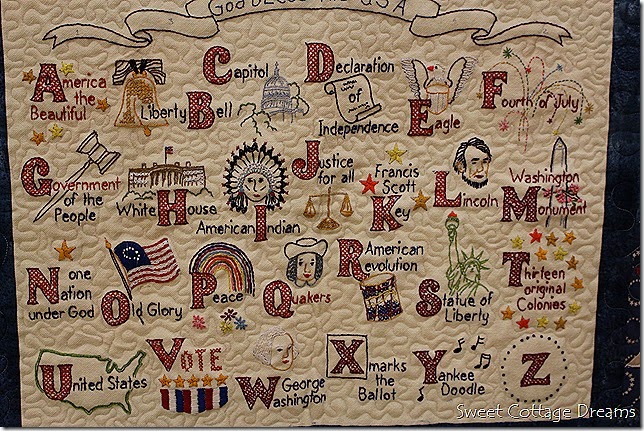 God Bless the USA
America
the
Beautiful
Liberty Bell
Capitol
Declaration
of
Independence
Eagle
Fourth of July
Government
of the
People
White House
American Indian
Justice
for all
Francis
Scott
Key
Lincoln
Washington
Monument
None
Nation
under God
Old Glory
Peace
Quakers
American
Revolution
Statue of
Liberty
Thirteen
original
Colonies
United States
VOTE
George
Washington
X marks
the
Ballot
Yankee
Doodle
Z
Sweet Cottage Dreams